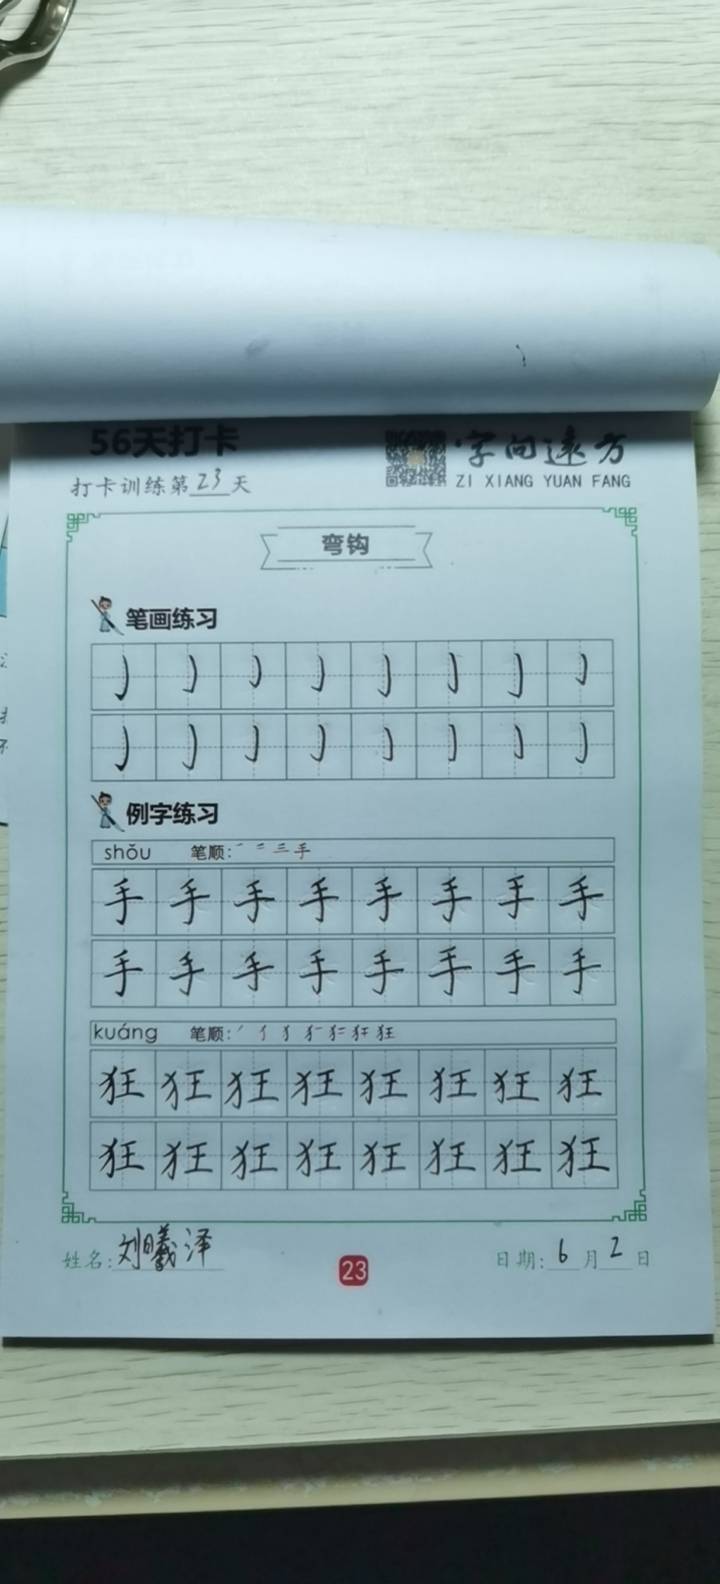 56天打卡
字向远方
打卡训练第23天
ZI XIANG YUAN FANG
弯钩
笔画练习
例字练习
shǒu 笔顺: 手
手手手手手手手手
手手手手手手手手
kuáng 笔顺: 狂
狂狂狂狂狂狂狂狂
狂狂狂狂狂狂狂狂
姓名: 刘曦泽
23
日期: 6月2日